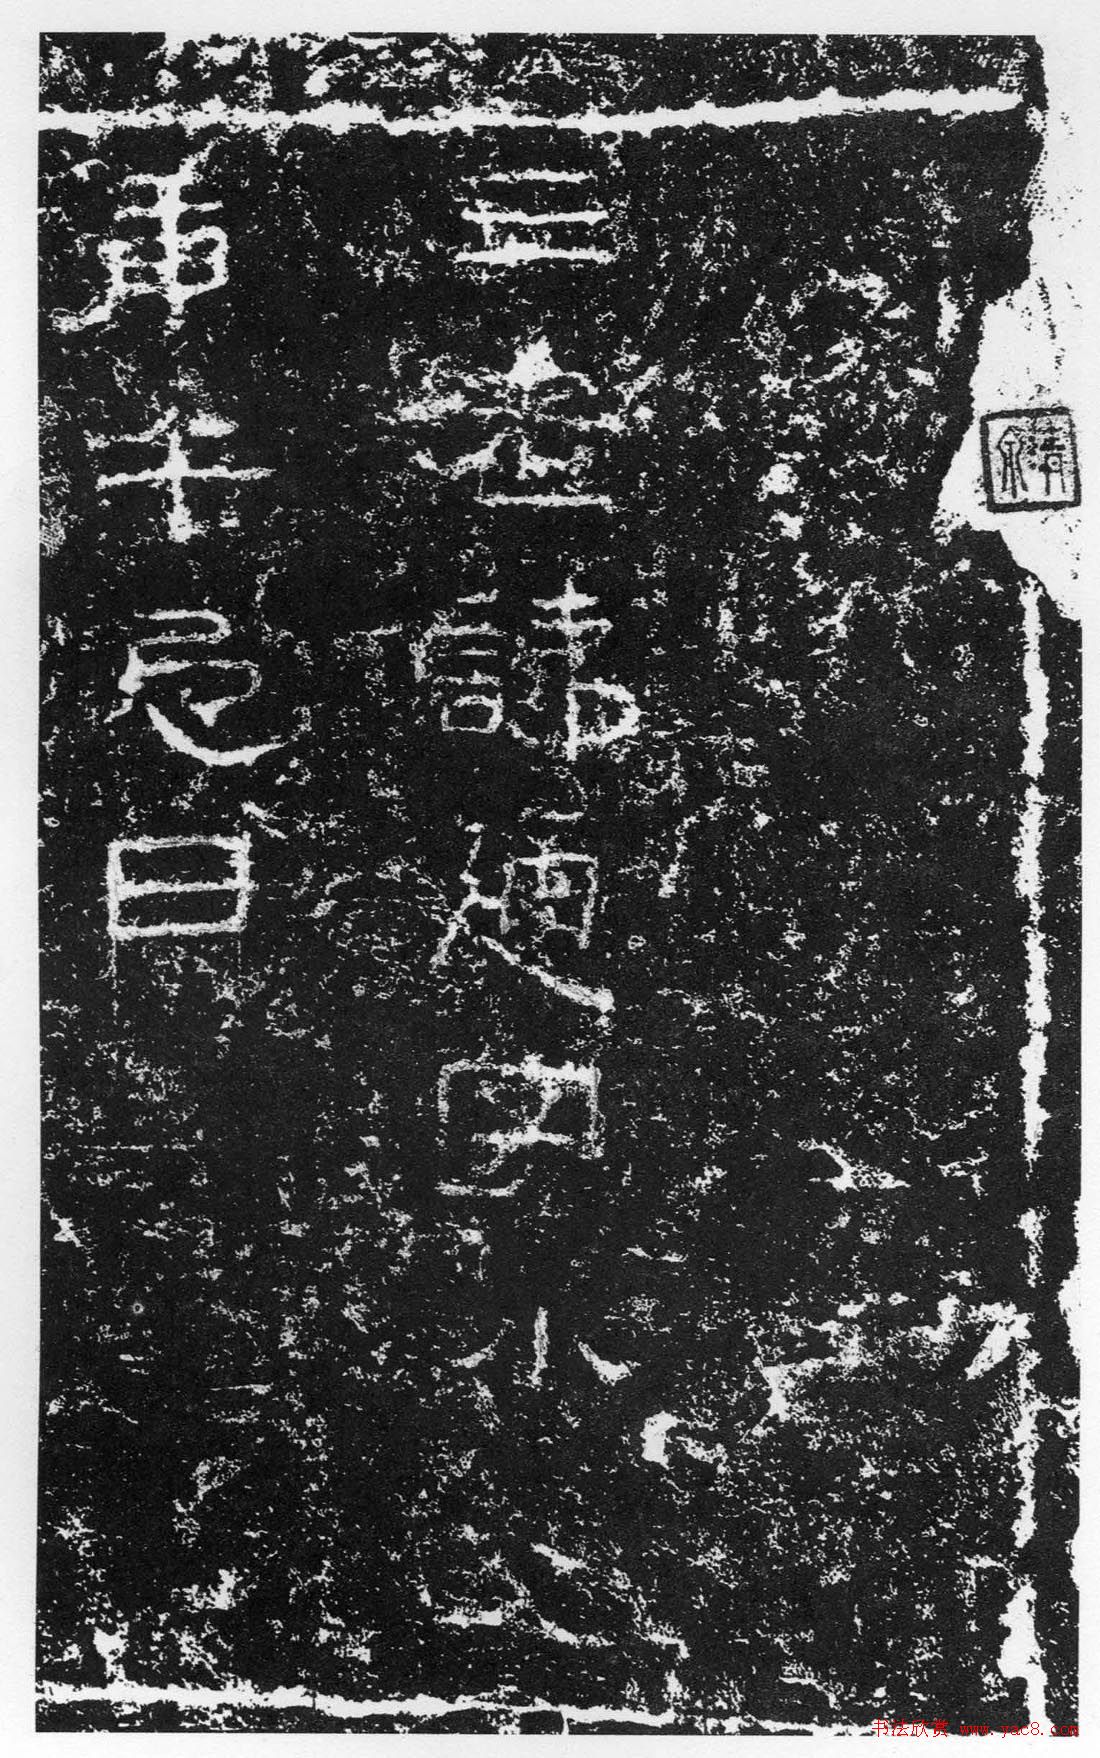 三老諱通字小
庚午忌日
书法欣赏 www.yac8.com